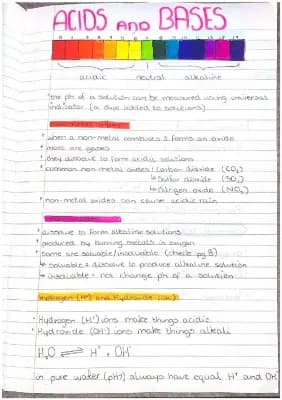 ACIDS AND BASES
0 1 2 3 4 5 6 7 8 9 10 11 12 13 14
acidic neutral alkaline
• the pH of a solution can be measured using universal
indicator (a dye added to solutions)
• when a non-metal combusts it forms an oxide
• most are gases
• they dissolve to form acidic solutions
• common non-metal oxides: Carbon dioxide (CO₂)
↳ Sulfur dioxide (SO₂)
↳ Nitrogen oxide (NO₂)
• non-metal oxides can cause acidic rain
• dissolve to form alkaline solutions
• produced by burning metals in oxygen
• some are soluble/insoluble (check pg 8)
↳ soluble = dissolve to produce alkaline solution
↳ insoluble = not change pH of a solution
Hydrogen (H⁺) and Hydroxide (OH⁻)
• Hydrogen (H⁺) ions make things acidic
• Hydroxide (OH⁻) ions make things alkali
H₂O ⇌ H⁺ + OH⁻
in pure water (pH7) always have equal H⁺ and OH⁻